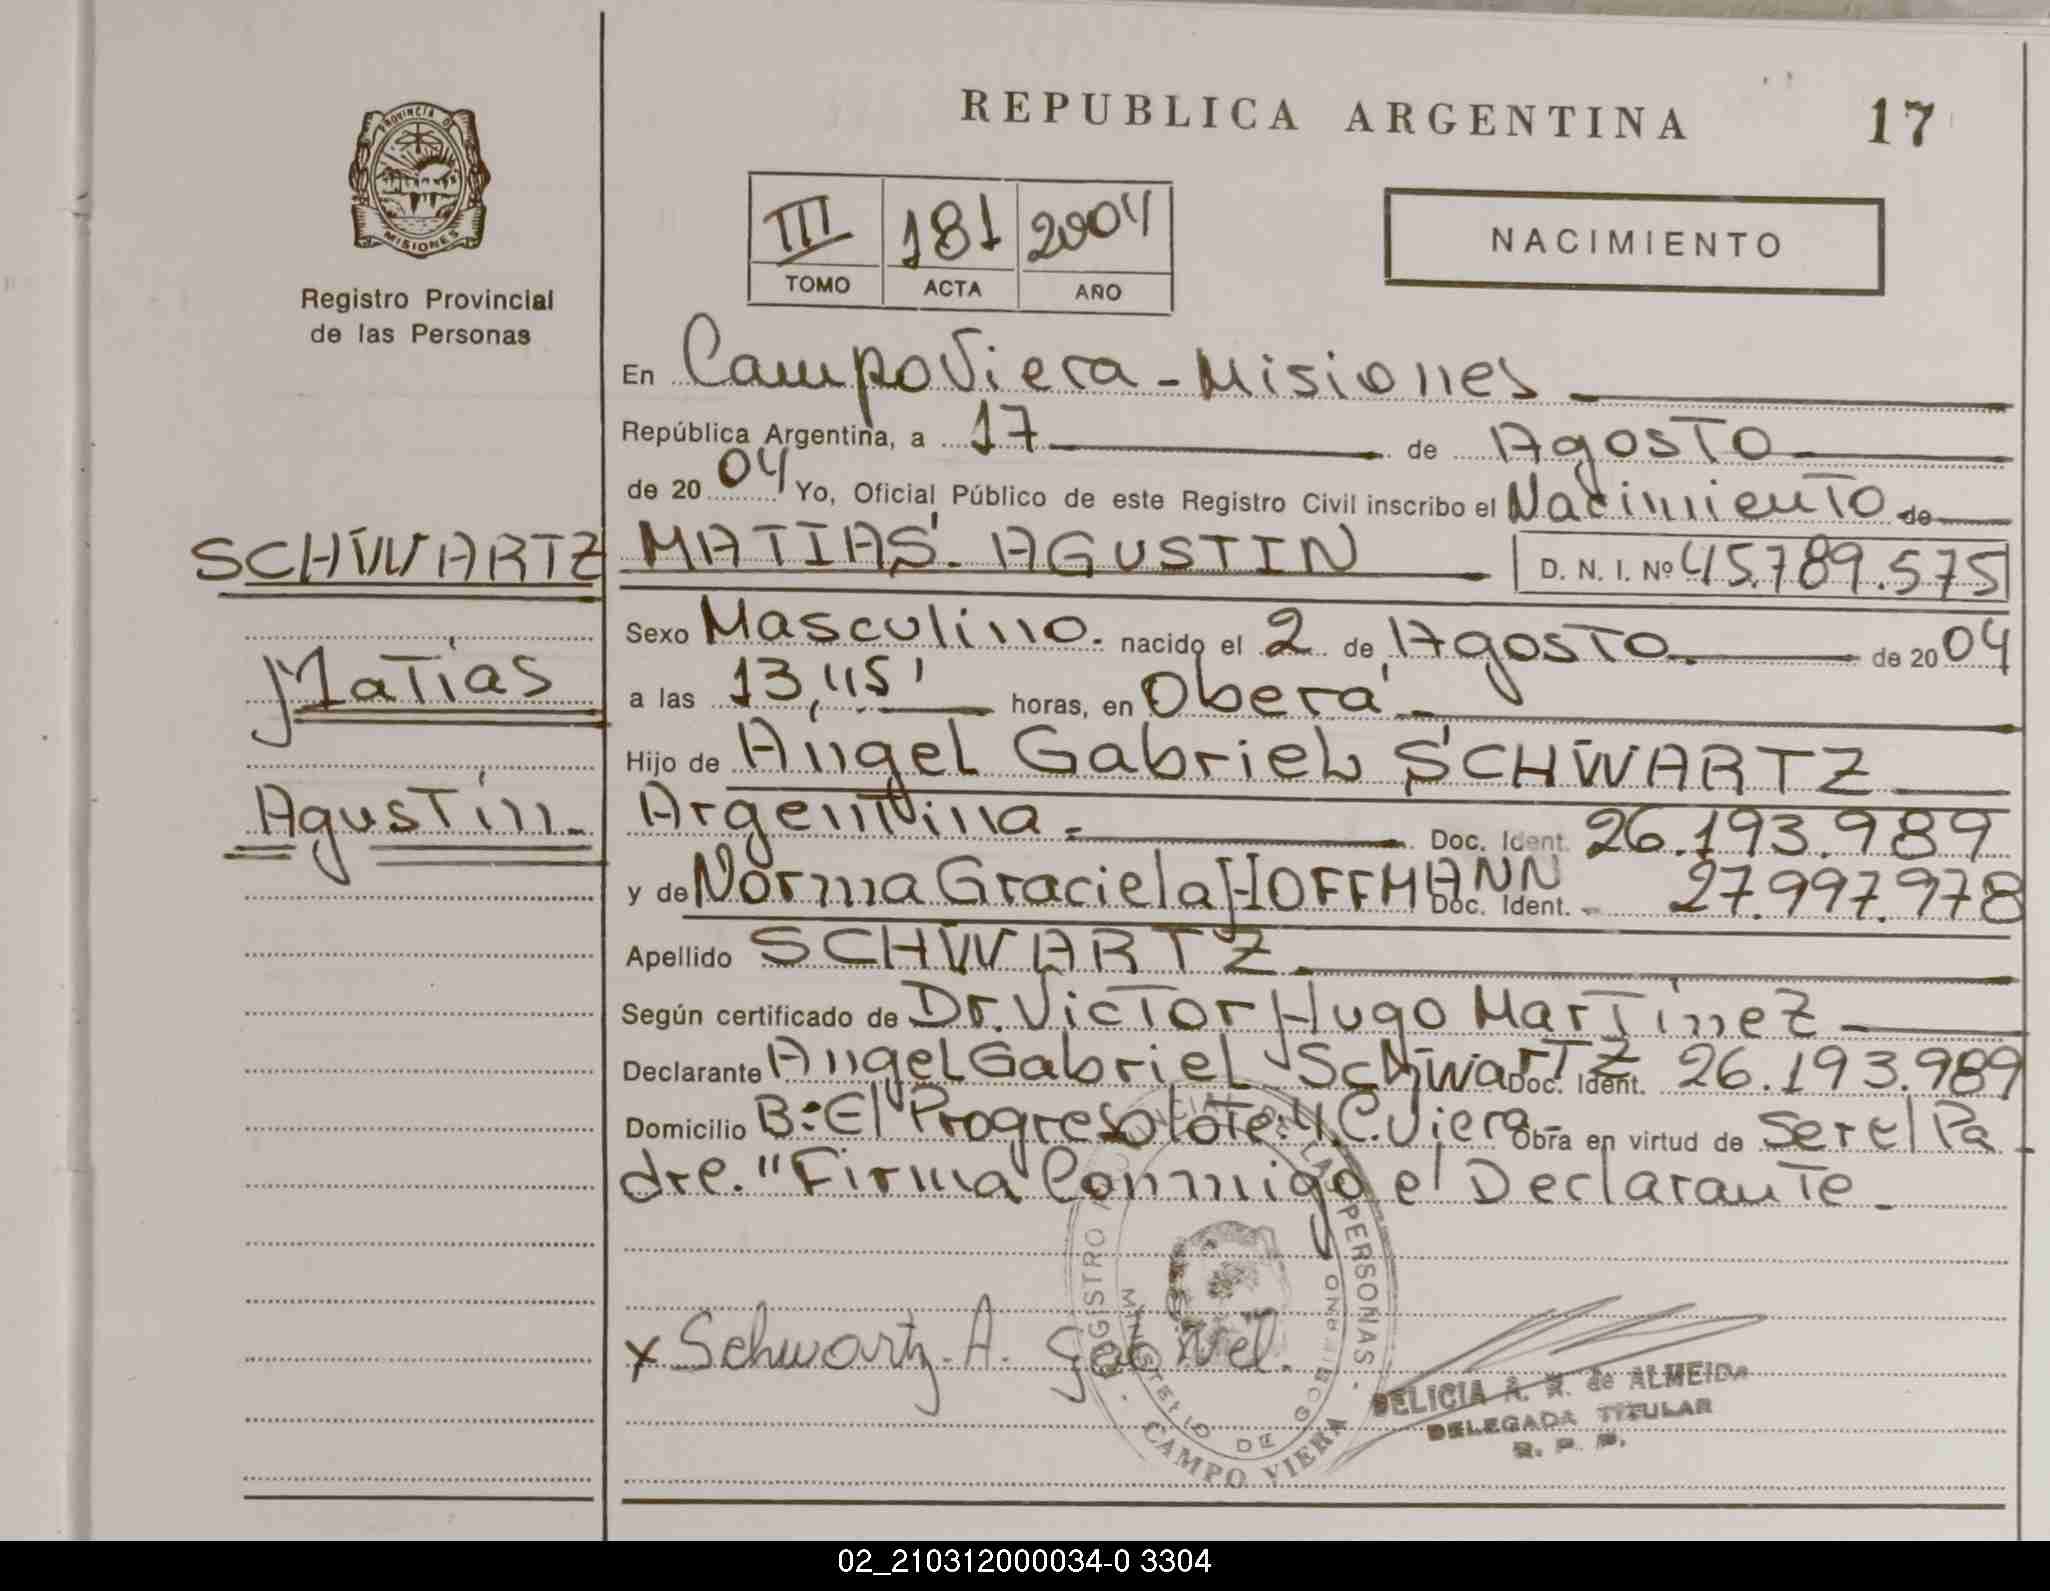 REPUBLICA ARGENTINA
17
PROVINCIA DE
MISIONES
Registro Provincial
de las Personas
III 181 2004
TOMO ACTA AÑO
NACIMIENTO
En Campo Viera - Misiones
República Argentina, a 17 de Agosto
de 2004 Yo, Oficial Público de este Registro Civil inscribo el Nacimiento de
SCHWARTZ
Matías
Agustín.-
MATIAS AGUSTIN D. N. I. Nº 45.789.575
Sexo Masculino. nacido el 2 de Agosto de 2004
a las 13,45' horas, en Oberá
Hijo de Angel Gabriel SCHWARTZ
Argentina.- Doc. Ident. 26.193.989
y de Norma Graciela HOFFMANN Doc. Ident. 27.997.978
Apellido SCHWARTZ
Según certificado de Dr. Victor Hugo Martínez
Declarante Angel Gabriel Schwartz Doc. Ident. 26.193.989
Domicilio B: El "Progreso" Lote: 4 C. Viera Obra en virtud de Ser el Pa-
dre. "Firma Conmigo el Declarante
x Schwartz. A. Gabriel.
LAS PERSONAS
MINISTERIO DE GOBIERNO
CAMPO VIERA
DELICIA A. R. de ALMEIDA
DELEGADA TITULAR
R. P. P.
02_210312000034-0 3304